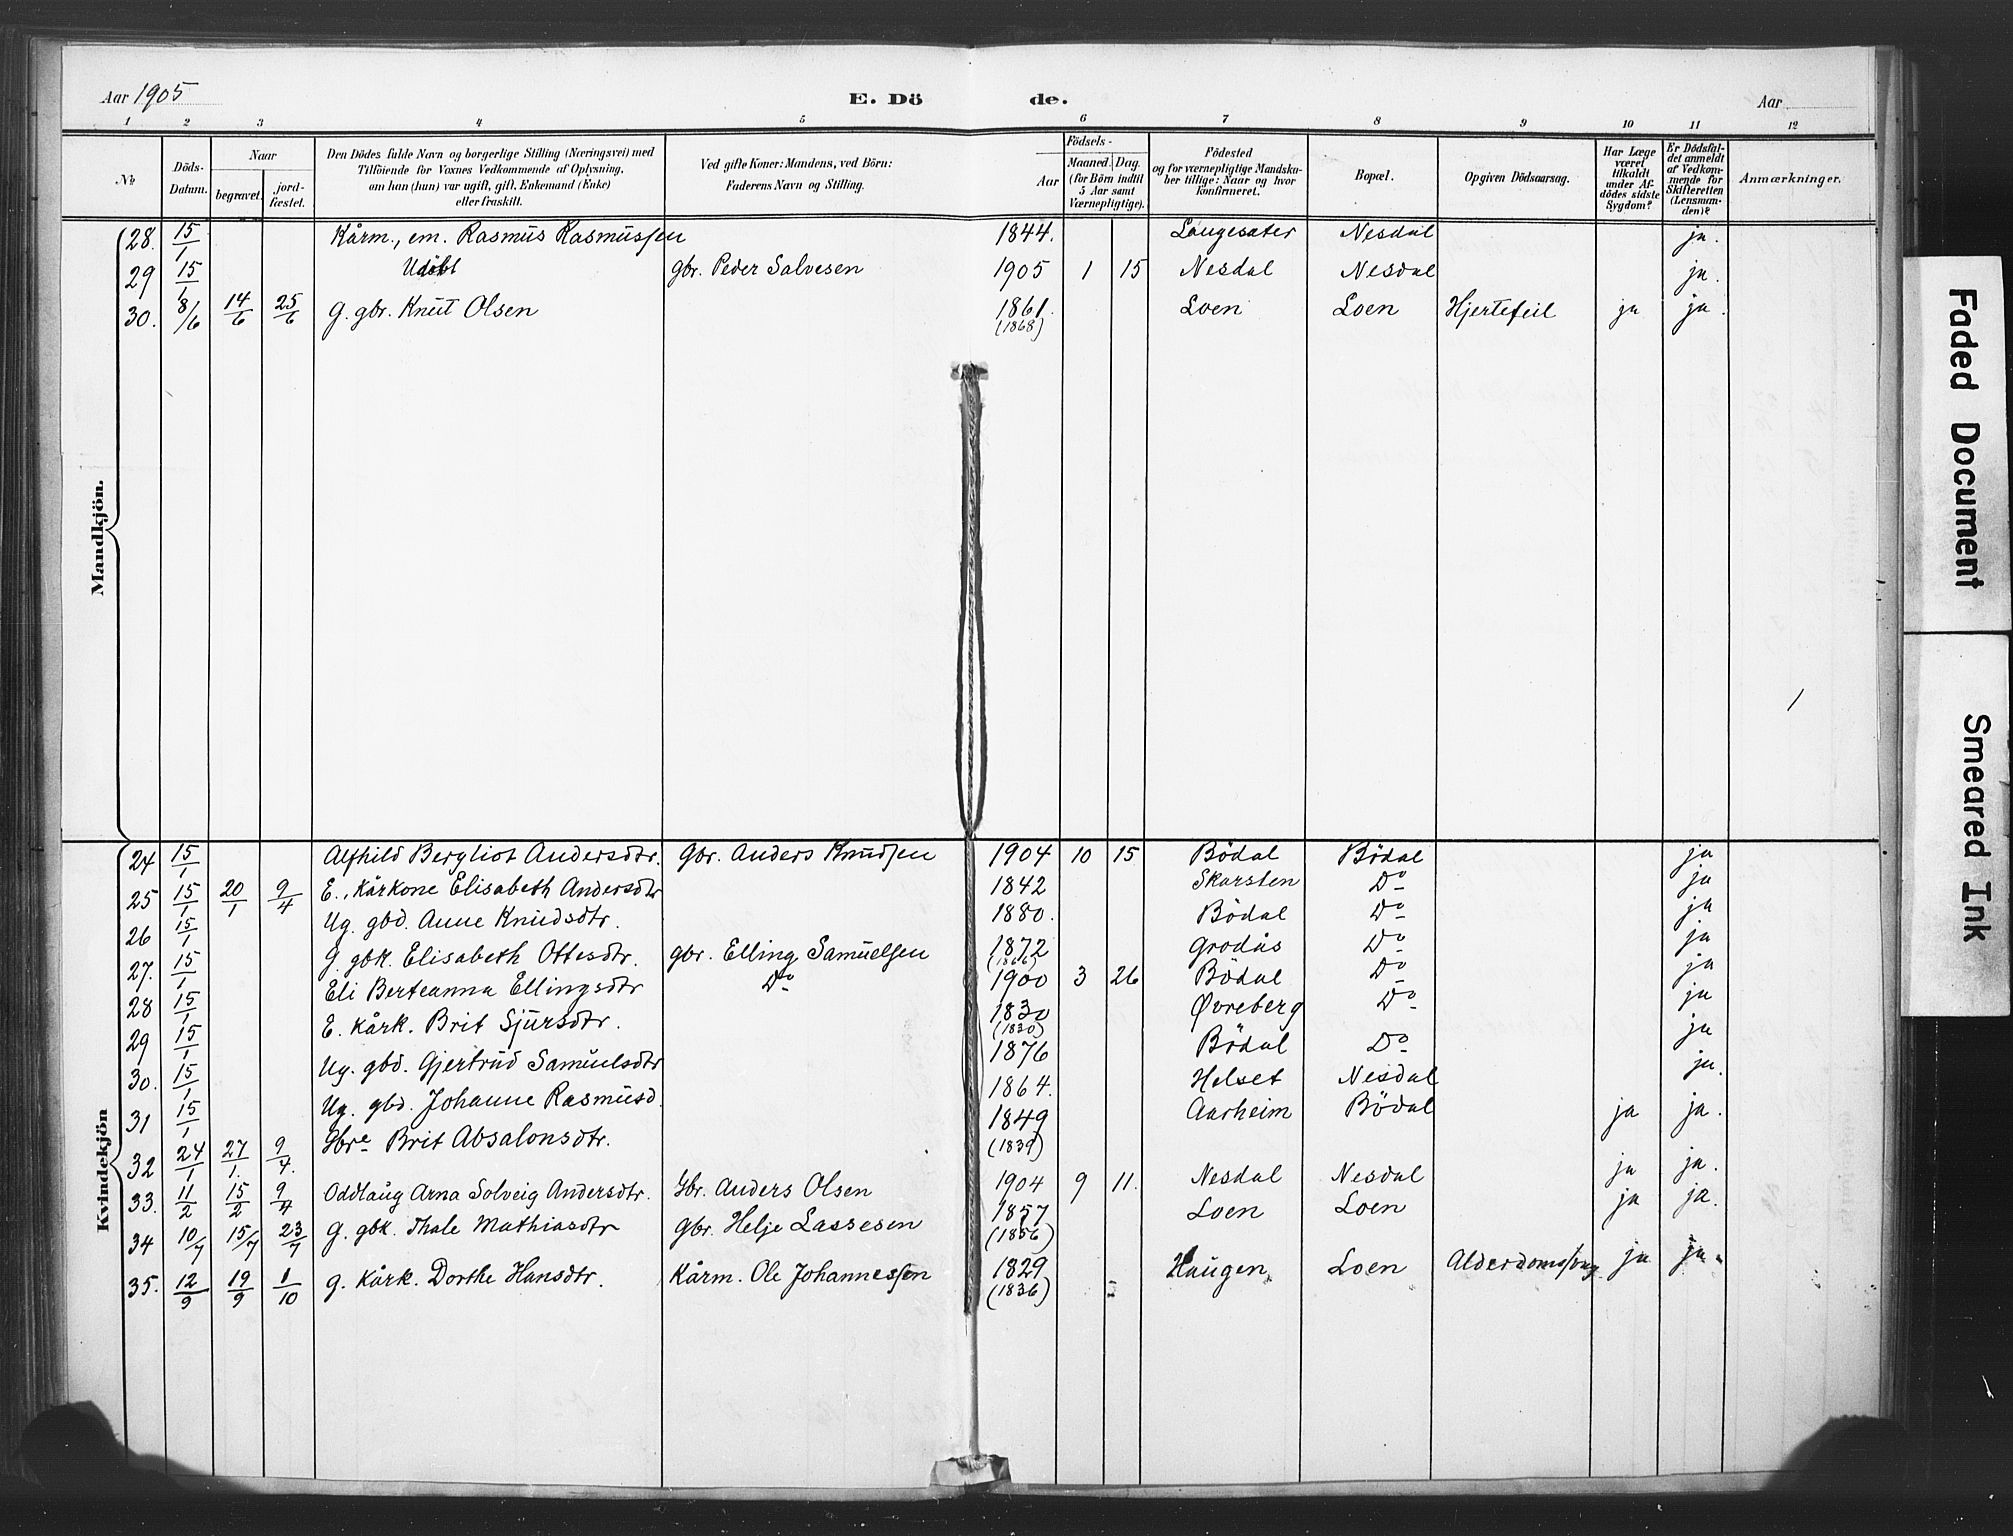 Aar 1905
E. Dö de.
Aar
1 2 3 4 5 6 7 8 9 10 11 12
No
Döds-Datum.
Naar
begravet. jord-fæstet.
Den Dödes fulde Navn og borgerlige Stilling (Næringsvei) med
Tilföiende for Voxnes Vedkommende af Oplysning,
om han (hun) var ugift, gift, Enkemand (Enke)
eller fraskilt.
Ved gifte Koner: Mandens, ved Börn:
Faderens Navn og Stilling.
Födsels-
Aar
Maaned. Dag.
(for Börn indtil
5 Aar samt
Værnepligtige).
Födested
og for værnepligtige Mandska-
ber tillige: Naar og hvor
konfirmeret.
Bopæl.
Opgiven Dödsaarsag.
Har Læge
været
tilkaldt
under Af-
dödes sidste
Sygdom?
Er Dödsfal-
det anmeldt
af Vedkom-
mende for
Skifteretten
(Lensman-
den)?
Anmærkninger.
Mandkjön.
28. 15/1 Kårm., em. Rasmus Rasmussen 1844. Langesæter Nesdal ja.
29 15/1 Udöbt gbr. Peder Salvesen 1905 1 15 Nesdal Nesdal ja.
30. 8/6 14/6 25/6 G. gbr. Knut Olsen 1861. (1868) Loen Loen Hjertefeil ja ja.
Kvindekjön
24 15/1 Alfhild Bergliot Andersdtr. Gbr. Anders Knudsen 1904 10 15 Bödal Bödal ja
25 15/1 20/1 9/4 E., Kårkone Elisabeth Andersdtr 1842 Skarsten Do ja
26 15/1 Ug. gbd. Anne Knudsdtr. 1880. Bödal Do ja
27. 15/1 G. gbk. Elisabeth Ottesdtr. gbr. Elling Samuelsen 1872 Grodås Do ja
28 15/1 Eli Berteanna Ellingsdtr Do 1900 3 26 Bödal Do ja
29 15/1 E. Kårk. Brit Sjursdtr. 1830 (1830) Øvreberg Do ja
30. 15/1 Ug. gbd. Gjertrud Samuelsdtr 1876 Bödal Do ja
31 15/1 Ug. gbd. Johanne Rasmusd. 1864. Helset Nesdal ja.
32 24/1 27/1. 9/4. Gbre Brit Absalonsdtr. 1849 (1839) Aarheim Bödal ja ja.
33. 11/2 15/2 9/4 Oddlaug Arna Solveig Andersdtr. Gbr. Anders Olsen 1904 9 11. Nesdal Nesdal ja ja.
34 10/7 15/7 23/7 G. gbk. Thale Mathiasdtr gbr. Helje Lassesen 1857 (1856) Loen Loen ja ja.
35. 12/9 19/9 1/10 G. Kårk. Dorthe Hansdtr. Kårm. Ole Johannessen 1829 (1836) Haugen Loen ja ja.
Faded Document
Smeared Ink